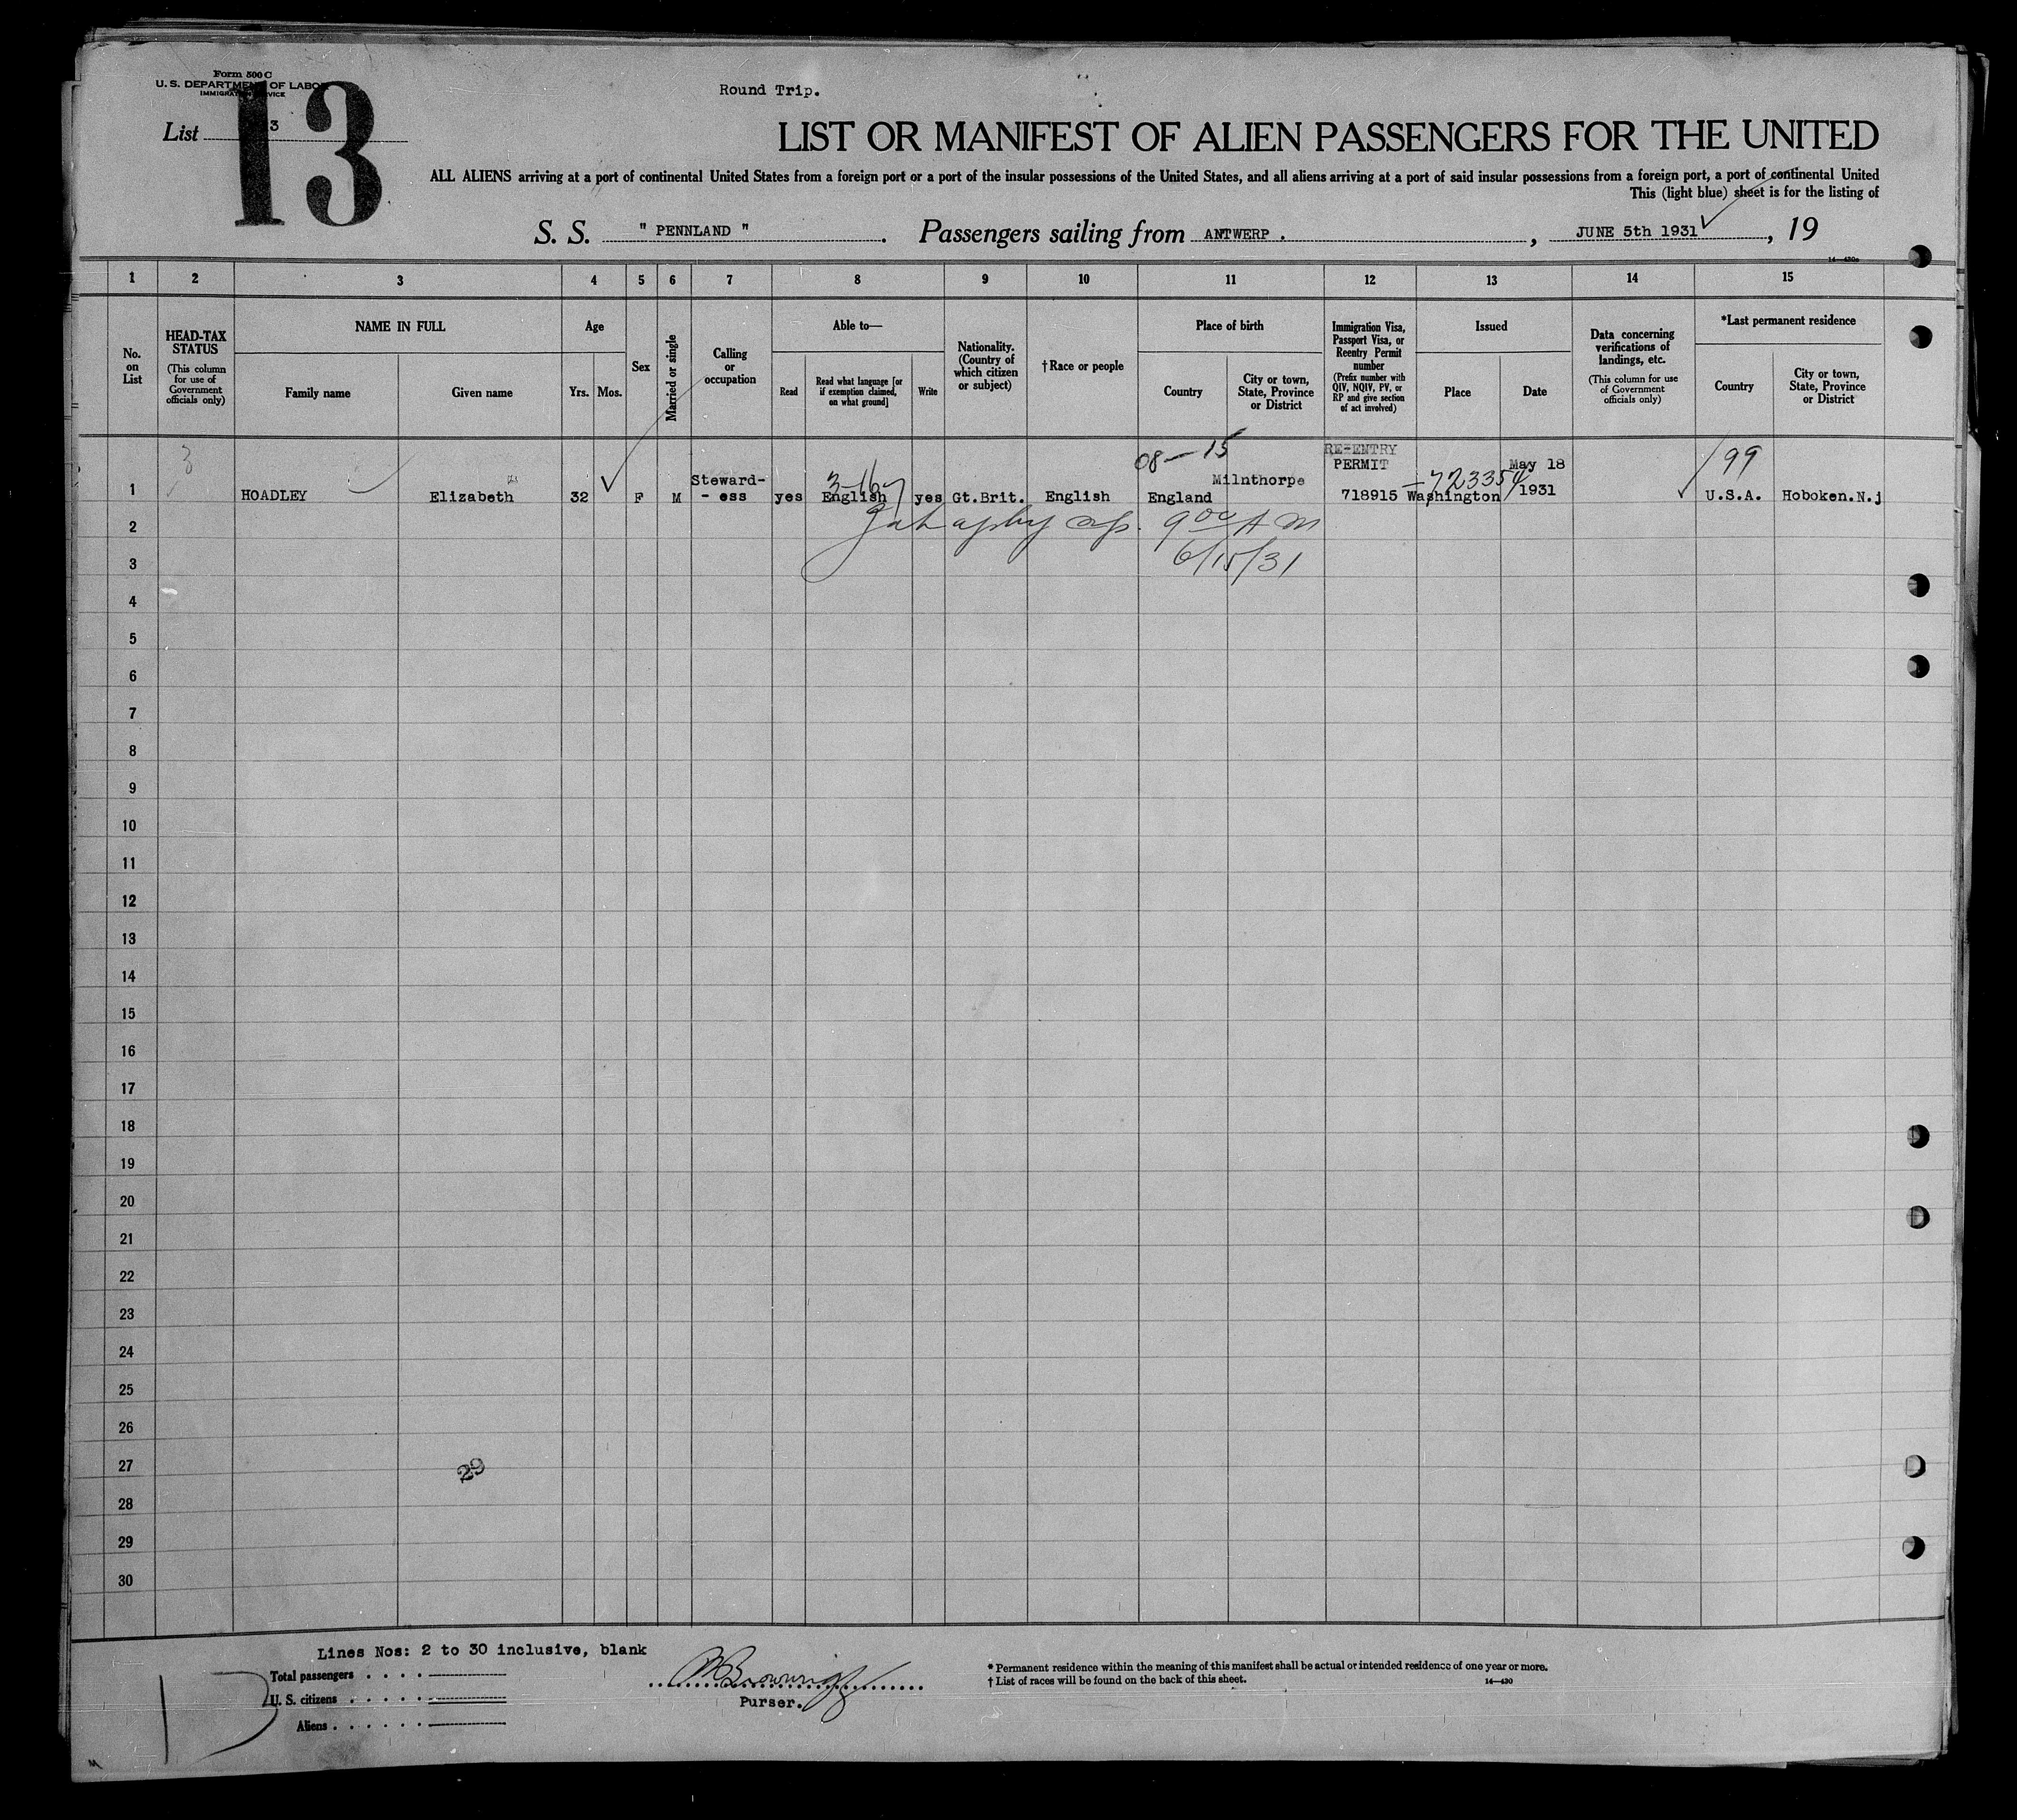 Form 500 C
U. S. DEPARTMENT OF LABOR
IMMIGRATION SERVICE
Round Trip.
List 3
13
LIST OR MANIFEST OF ALIEN PASSENGERS FOR THE UNITED
ALL ALIENS arriving at a port of continental United States from a foreign port or a port of the insular possessions of the United States, and all aliens arriving at a port of said insular possessions from a foreign port, a port of continental United
This (light blue) sheet is for the listing of
S. S. " PENNLAND ". Passengers sailing from ANTWERP . , JUNE 5th 1931 , 19
14—430a
1 2 3 4 5 6 7 8 9 10 11 12 13 14 15
No. on List
HEAD-TAX STATUS
(This column for use of Government officials only)
NAME IN FULL
Family name Given name
Age
Yrs. Mos.
Sex
Married or single
Calling or occupation
Able to—
Read
Read what language [or if exemption claimed, on what ground]
Write
Nationality. (Country of which citizen or subject)
†Race or people
Place of birth
Country
City or town, State, Province or District
Immigration Visa, Passport Visa, or Reentry Permit number
(Prefix number with QIV, NQIV, PV, or RP and give section of act involved)
Issued
Place Date
Data concerning verifications of landings, etc.
(This column for use of Government officials only)
*Last permanent residence
Country
City or town, State, Province or District
3 08—15 RE-ENTRY PERMIT 723354 May 18 99
1 HOADLEY Elizabeth 32 F M Steward-- ess yes English yes Gt.Brit. English England Milnthorpe 718915 Washington 1931 U.S.A. Hoboken.N.j
3-167
2 9 00 A M
3 6/15/31
4
5
6
7
8
9
10
11
12
13
14
15
16
17
18
19
20
21
22
23
24
25
26
27
28
29
30
29
Lines Nos: 2 to 30 inclusive, blank
Total passengers
U. S. citizens
Aliens
Purser.
* Permanent residence within the meaning of this manifest shall be actual or intended residence of one year or more.
† List of races will be found on the back of this sheet.
14—430